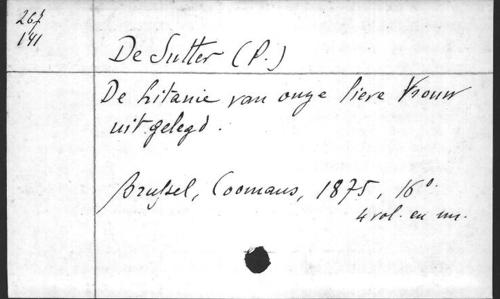 267
141
De Sutter (P.)
De Litanie van onze lieve Vrouw
uitgelegd.
Brussel, Coomans, 1875, 16°.
4 vol. en un.